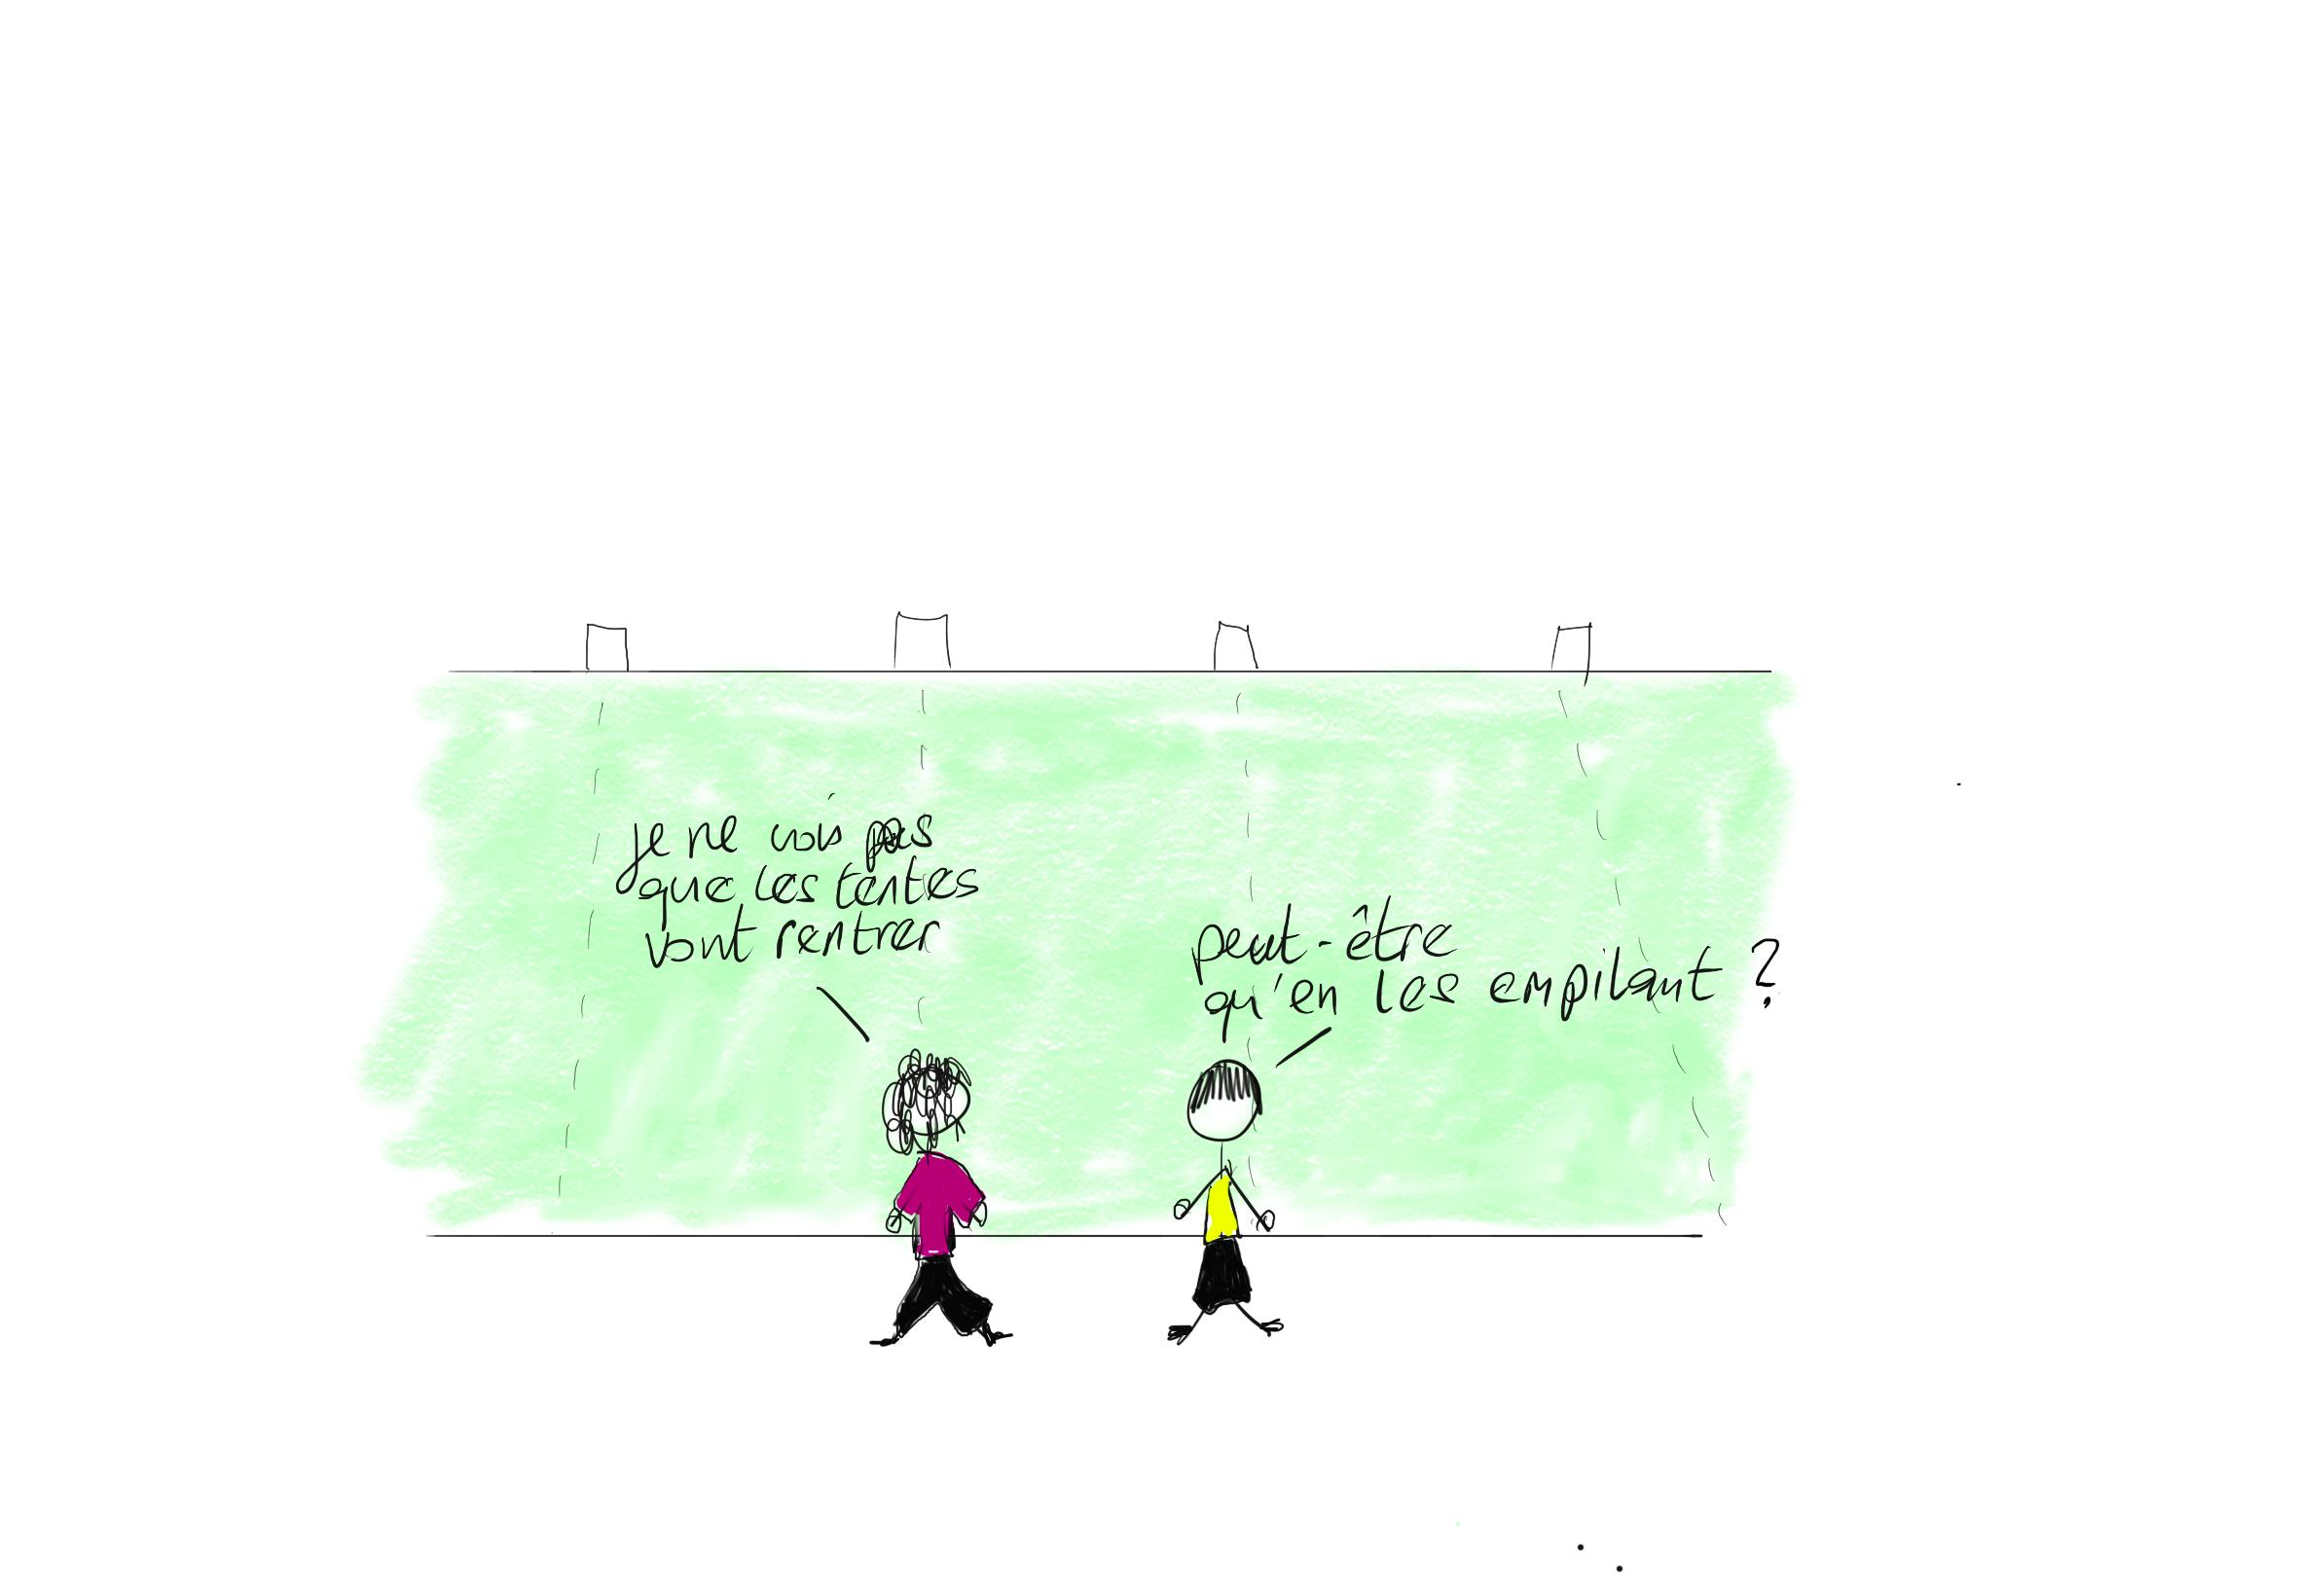 je ne vois pas
que les tentes
vont rentrer
peut-être
qu'en les empilant ?